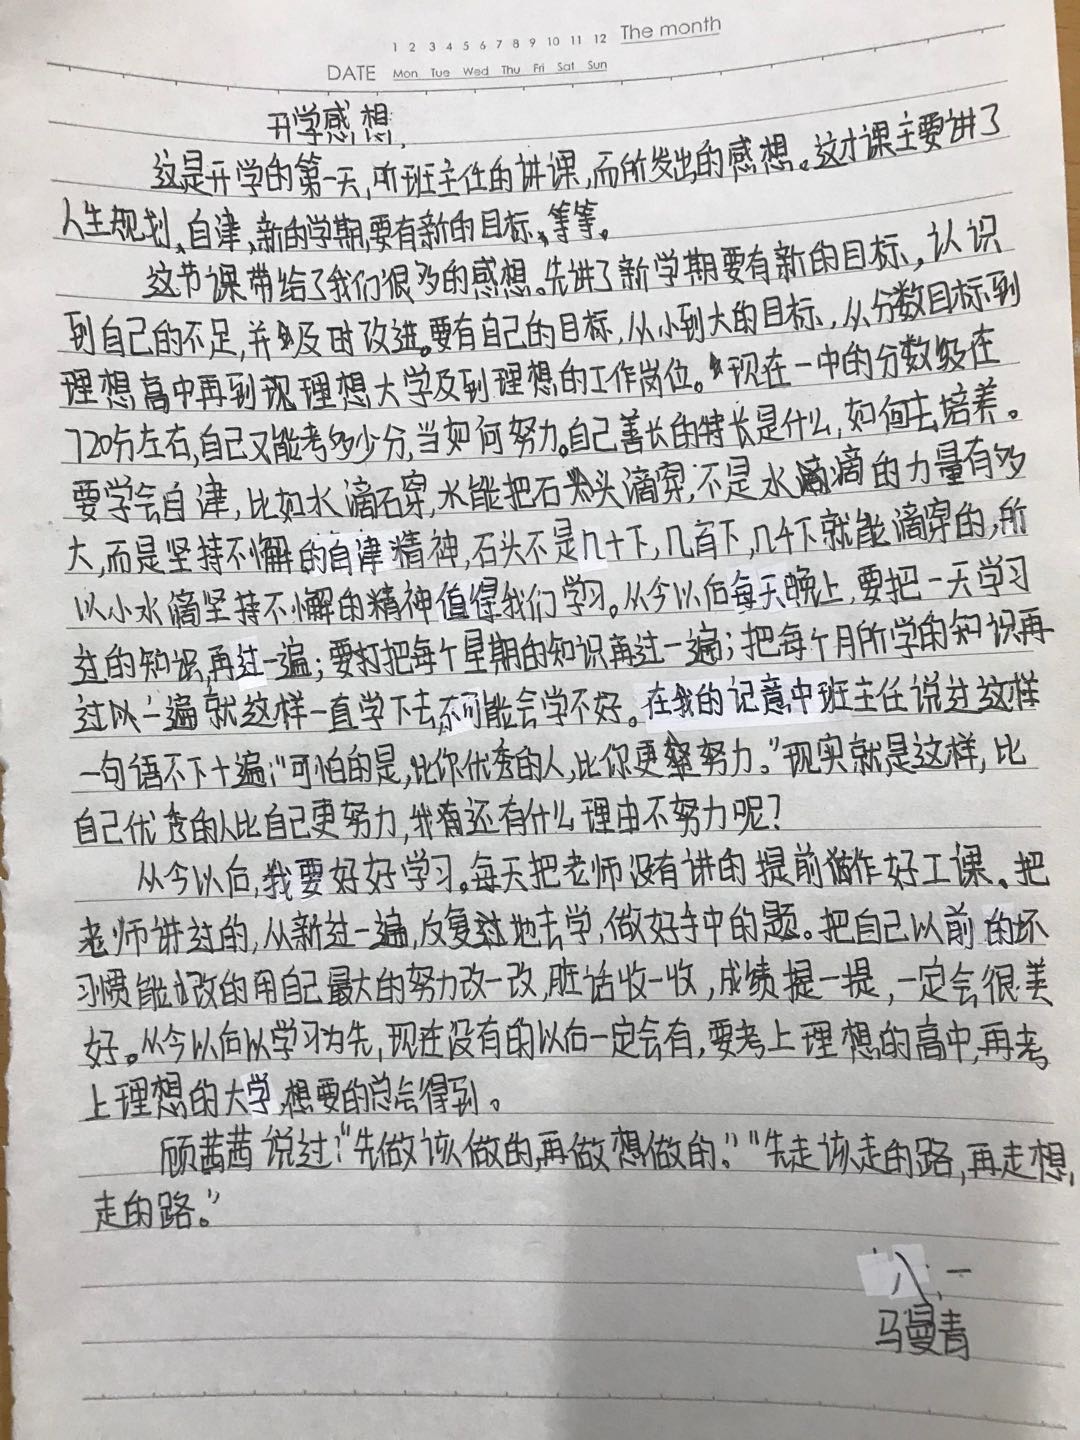 1 2 3 4 5 6 7 8 9 10 11 12 The month
DATE Mon Tue Wed Thu Fri Sat Sun
开学感想
这是开学的第一天,听班主任的讲课,而所发出的感想。这才课主要讲了
人生规划、自津、新的学期要有新的目标、等等。
这节课带给了我们很多的感想。先讲了新学期要有新的目标,认识
到自己的不足,并及时改进。要有自己的目标,从小到大的目标,从分数目标到
理想高中再到现理想大学及到理想的工作岗位。现在一中的分数级在
720分左右,自己又能考多少分,当如何努力。自己善长的特长是什么,如何去培养。
要学会自津,比如水滴石穿,水能把石头滴穿,不是水滴滴的力量有多
大,而是坚持不懈的自津精神,石头不是几十下,几百下,几千下就能滴穿的,所
以小水滴坚持不懈的精神值得我们学习。从今以后每天晚上,要把一天学习
过的知识,再过一遍;要打把每个星期的知识再过一遍;把每个月所学的知识再
过以一遍就这样一直学下去不可能会学不好。在我的记意中班主任说过这样
一句语不下十遍;“可怕的是,比你优秀的人,比你更努力。”现实就是这样,比
自己优秀的人比自己更努力,我有还有什么理由不努力呢?
从今以后,我要好好学习。每天把老师没有讲的提前做作好工课。把
老师讲过的,从新过一遍,反复过地去学,做好手中的题。把自己以前的坏
习惯能改的用自己最大的努力改一改,脏话收一收,成绩提一提,一定会很美
好。从今以后以学习为先,现在没有的以后一定会有,要考上理想的高中,再考
上理想的大学,想要的总会得到。
顾茜茜说过:“先做该做的,再做想做的。”“先走该走的路,再走想
走的路。”
八.一
马曼青